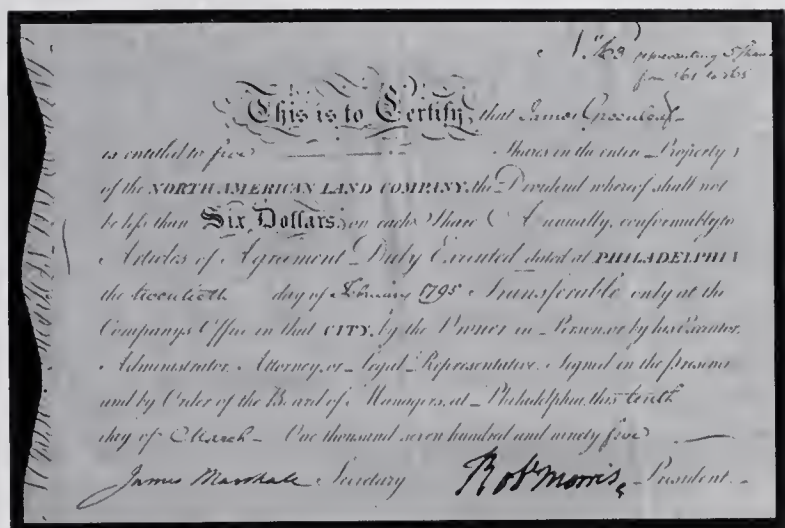 representing 5 Shares
from 161 to 165
This is to Certify, that James Greenleaf
is entitled to five Shares in the entire Property
of the NORTH AMERICAN LAND COMPANY, the Dividend whereof shall not
be less than Six Dollars, on each Share Annually, conformably to
Articles of Agreement Duly Executed dated at PHILADELPHIA
the twentieth day of February 1795 Transferable only at the
Companys Office in that CITY, by the Owner in Person, or by his Executor,
Administrator, Attorney, or Legal Representative. Signed in the presence
and by Order of the Board of Managers, at Philadelphia, this tenth
day of March One thousand seven hundred and ninety five
James Marshall Secretary Robt Morris, President.